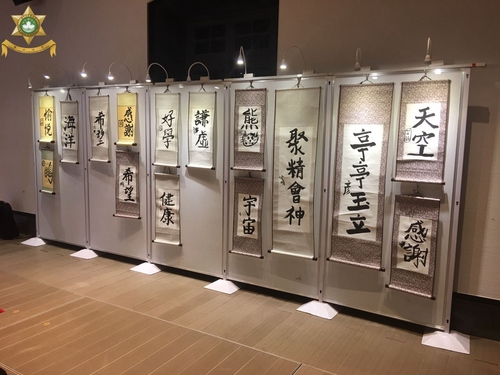 愉悅
海洋
希望
感謝
希望
好學
健康
謙虛
熊貓
宇宙
聚精會神
亭亭玉立
天空
感謝